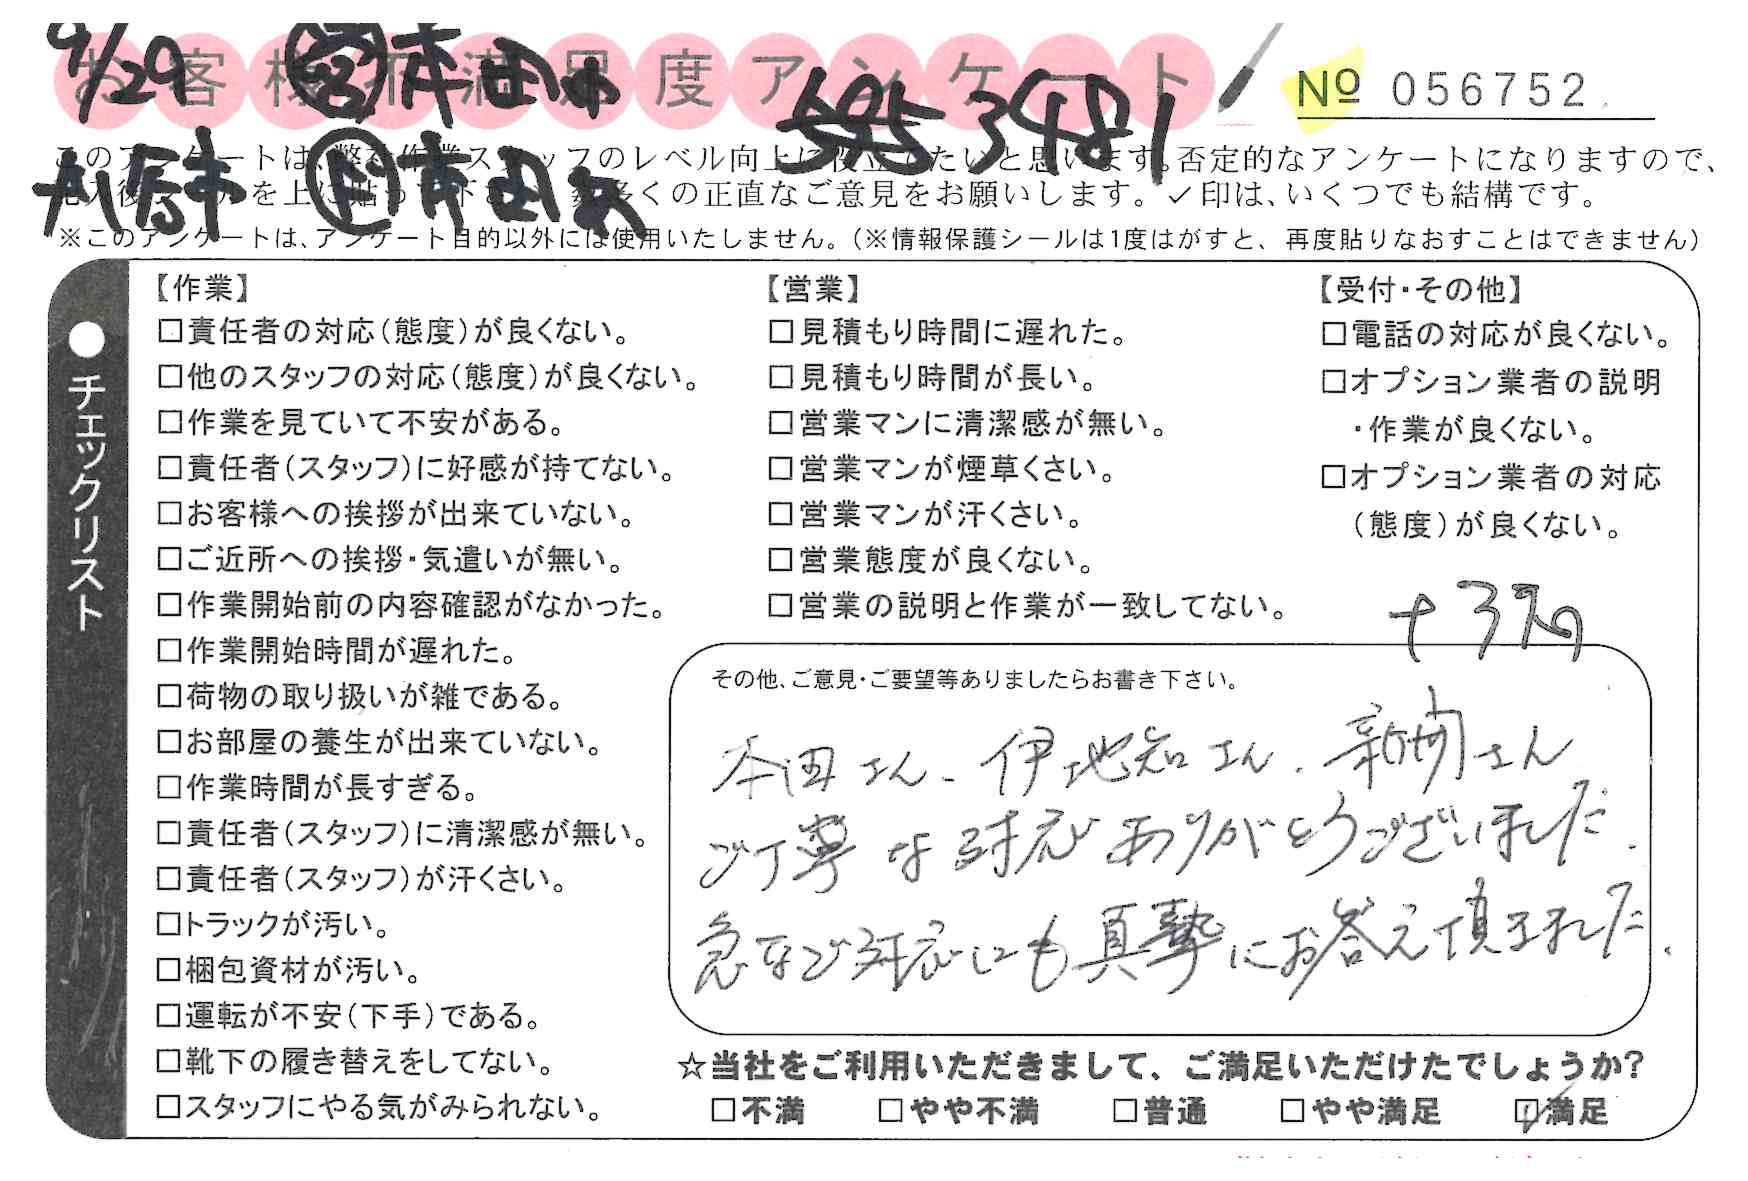 9/29
お客様不満足度アンケート
685 3481
№ 056752
このアンケートは、弊社作業スタッフのレベル向上に役立てたいと思います。否定的なアンケートになりますので、
記入後シールを上に貼って下さい。数多くの正直なご意見をお願いします。✓印は、いくつでも結構です。
※このアンケートは、アンケート目的以外には使用いたしません。（※情報保護シールは1度はがすと、再度貼りなおすことはできません）
●チェックリスト
【作業】
□責任者の対応（態度）が良くない。
□他のスタッフの対応（態度）が良くない。
□作業を見ていて不安がある。
□責任者（スタッフ）に好感が持てない。
□お客様への挨拶が出来ていない。
□ご近所への挨拶・気遣いが無い。
□作業開始前の内容確認がなかった。
□作業開始時間が遅れた。
□荷物の取り扱いが雑である。
□お部屋の養生が出来ていない。
□作業時間が長すぎる。
□責任者（スタッフ）に清潔感が無い。
□責任者（スタッフ）が汗くさい。
□トラックが汚い。
□梱包資材が汚い。
□運転が不安（下手）である。
□靴下の履き替えをしてない。
□スタッフにやる気がみられない。
【営業】
□見積もり時間に遅れた。
□見積もり時間が長い。
□営業マンに清潔感が無い。
□営業マンが煙草くさい。
□営業マンが汗くさい。
□営業態度が良くない。
□営業の説明と作業が一致してない。
【受付・その他】
□電話の対応が良くない。
□オプション業者の説明
・作業が良くない。
□オプション業者の対応
（態度）が良くない。
その他、ご意見・ご要望等ありましたらお書き下さい。
本田さん、伊地知さん、新開さん
ご丁寧な対応ありがとうございました。
急なご対応にも真摯にお答え頂きました。
☆当社をご利用いただきまして、ご満足いただけたでしょうか?
□不満 □やや不満 □普通 □やや満足 ☑満足